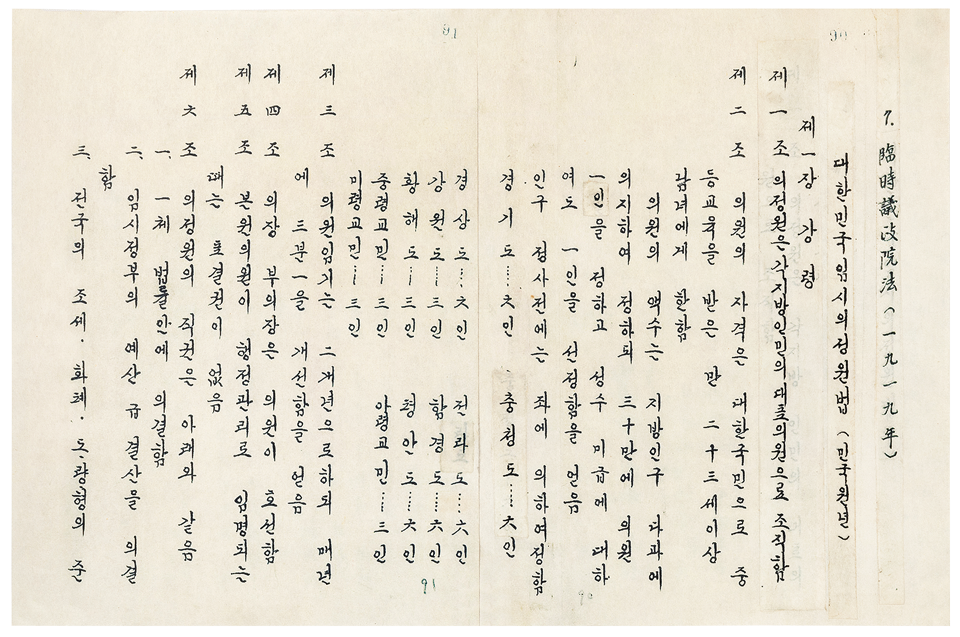 90
7. 臨時議政院法 (一九一九年)
대한민국임시의정원법 (민국원년)
제一장 강 령
제 一 조 의정원은각지방인민의대표의원으로 조직함
제 二 조 의원의 자격은 대한국민으로 중
등교육을 받은 만 二十三세이상
남녀에게 한함
의원의 액수는 지방인구 다과에
의지하여 정하되 三十만에 의원
一인을 정하고 성수 미급에 대하
여도 一인을 선정함을 얻음
인구 정사전에는 좌에 의하여정함
경기도……六인 충청도……六인
경상도……六인 전라도……六인
강원도……三인 함경도……六인
황해도……三인 평안도……六인
중령교민……三인 아령교민……三인
미령교민……三인
제 三 조 의원임기는 二개년으로하되 매년
에 三분一을 개선함을 얻음
제 四 조 의장 부의장은 의원이 호선함
제 五 조 본원의원이 행정관리로 임명되는
때는 표결권이 없음
제 六 조 의정원의 직권은 아래와 같음
一. 一체 법률안에 의결함
二. 임시정부의 예산 급 결산을 의결
함
三. 전국의 조세·화폐·도량형의 준
91
91
90